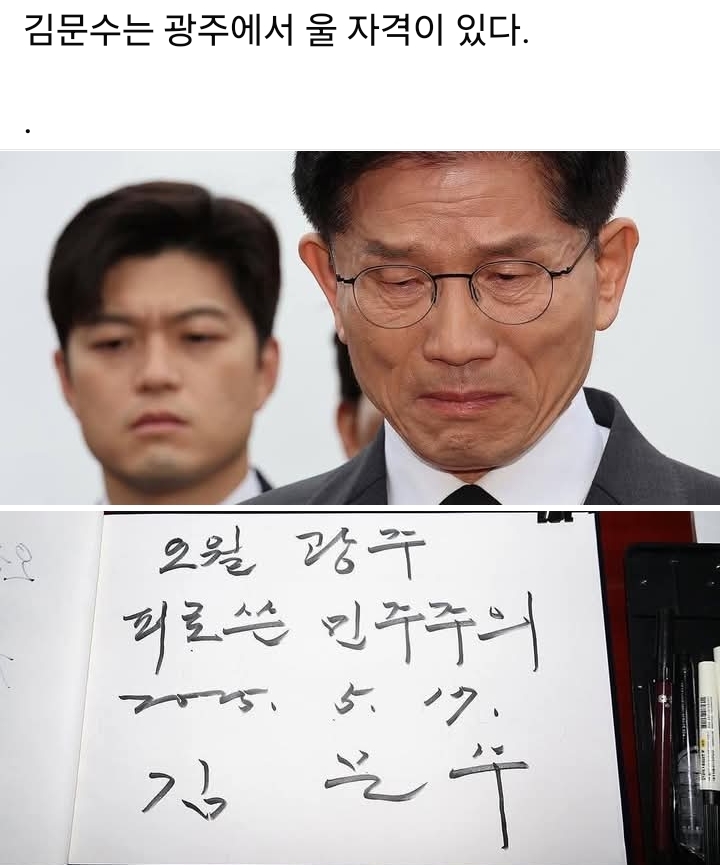 김문수는 광주에서 울 자격이 있다.
.
오월 광주
피로쓴 민주주의
2025. 5. 17.
김 문 수